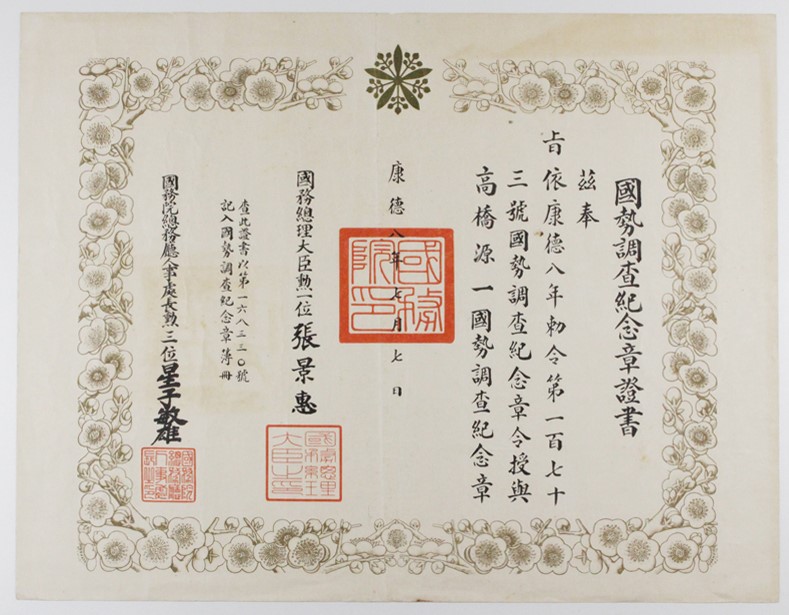 國勢調查紀念章證書
茲奉
旨依康德八年勅令第一百七十
三號國勢調查紀念章令授與
高橋源一國勢調查紀念章
康德八年七月七日
國務院印
國務總理大臣勲一位張景惠
查此證書以第一六八三三〇號
記入國勢調查紀念章簿冊
國務院總務廳人事處長勲三位星子敏雄